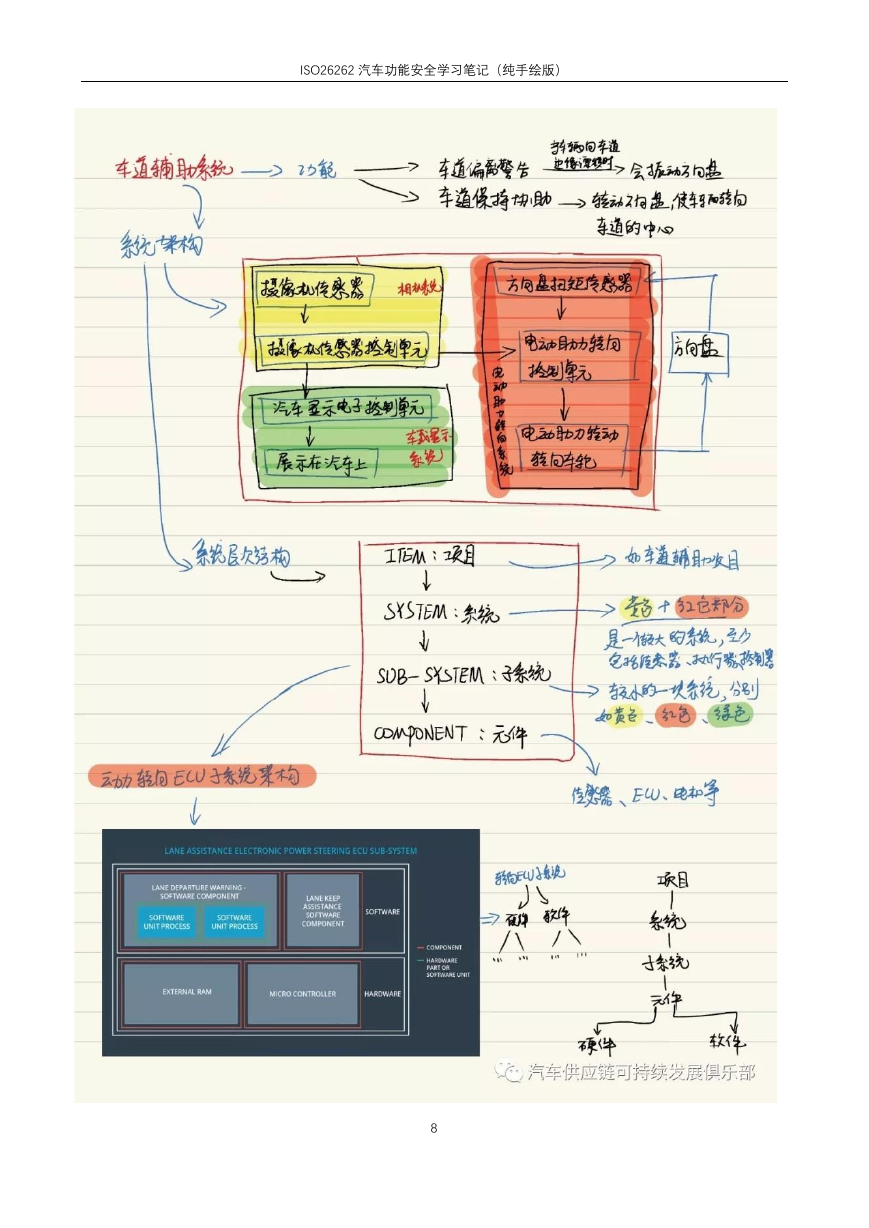 ISO26262 汽车功能安全学习笔记（纯手绘版）
车道辅助系统 功能 车道偏离警告 会振动方向盘
车道保持协助 转动方向盘,使车辆转向
车道的中心
系统架构
摄像机传感器 相机系统
摄像机传感器控制单元
汽车显示电子控制单元
车载显示
系统
展示在汽车上
方向盘扭矩传感器
电动助力转向
控制单元
电动助力转向系统
电动助力转动
转向车轮
方向盘
系统层次结构
ITEM：项目 如车道辅助项目
SYSTEM：系统 黄色+红色部分
是一个较大的系统,至少
包括传感器、执行器、控制器
SUB-SYSTEM：子系统 较小的一块系统,分别
如黄色、红色、绿色
COMPONENT：元件
传感器、ECU、电机等
动力转向ECU子系统架构
LANE ASSISTANCE ELECTRONIC POWER STEERING ECU SUB-SYSTEM
LANE DEPARTURE WARNING -
SOFTWARE COMPONENT
SOFTWARE
UNIT PROCESS
SOFTWARE
UNIT PROCESS
LANE KEEP
ASSISTANCE
SOFTWARE
COMPONENT
SOFTWARE
EXTERNAL RAM
MICRO CONTROLLER
HARDWARE
COMPONENT
HARDWARE
PART OR
SOFTWARE UNIT
转向ECU子系统
硬件 软件
... ... ... ...
项目
系统
子系统
元件
硬件 软件
汽车供应链可持续发展俱乐部
8